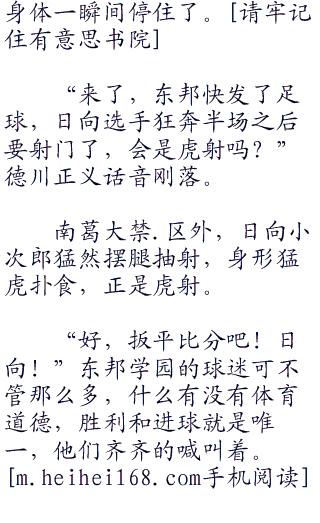 身体一瞬间停住了。[请牢记
住有意思书院]
“来了，东邦快发了足
球，日向选手狂奔半场之后
要射门了，会是虎射吗？”
德川正义话音刚落。
南葛大禁.区外，日向小
次郎猛然摆腿抽射，身形猛
虎扑食，正是虎射。
“好，扳平比分吧！日
向！”东邦学园的球迷可不
管那么多，什么有没有体育
道德，胜利和进球就是唯
一，他们齐齐的喊叫着。
[m.heihei168.com手机阅读]